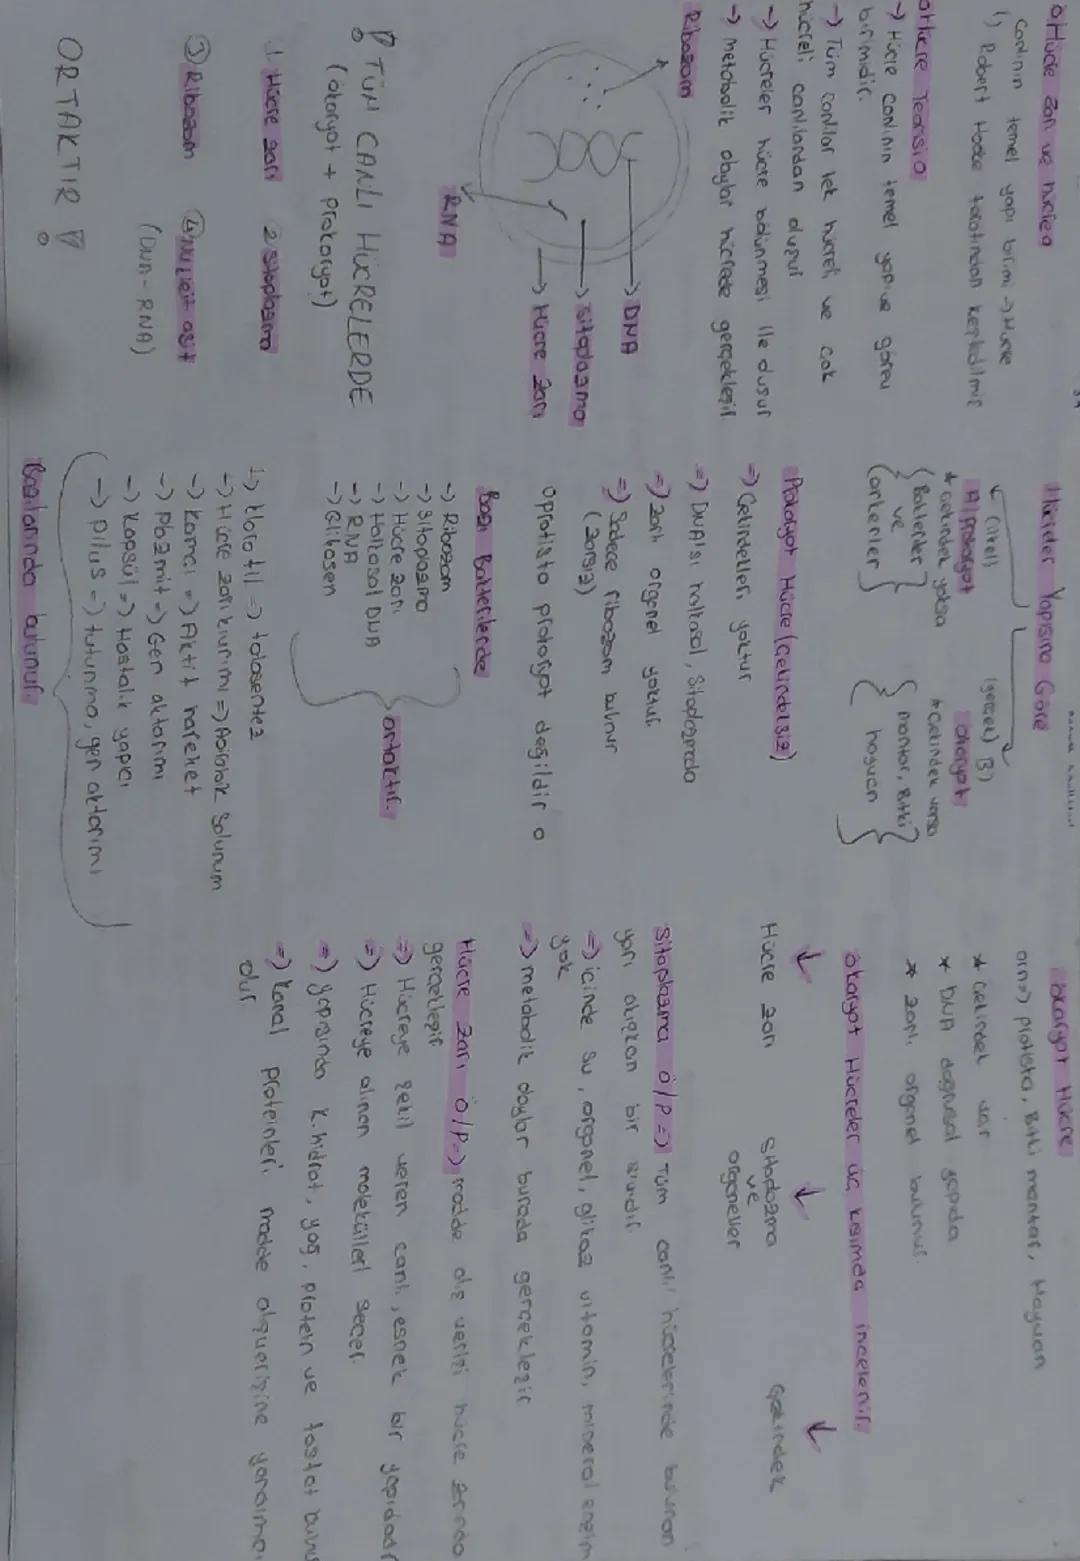 Hücre zarı ve nüclea
Canlının temel yapı birimi -> Hücre
1) Robert Hooke tarafından keşfedilmiş
Hücre Teorisi
-> Hücre canlının temel yapı ve görev
birimidir.
-> Tüm canlılar tek hücreli ve çok
hücreli canlılardan oluşur
-> Hücreler hücre bölünmesi ile oluşur
-> metabolik olaylar hücrede gerçekleşir.
Ribozom
-> DNA
-> Sitoplazma
-> Hücre zarı
RNA
! TÜM CANLI HÜCRELERDE
(ökaryot + prokaryot)
1. Hücre zarı 2 sitoplazma
③ Ribozom ④ nükleit asit
(DNA - RNA)
ORTAKTIR !
Hücreler Yapısına Göre
(ilkel) (gerçek)
A) prokaryot B) ökaryot
* çekirdek yoksa * çekirdek varsa
{ Bakteriler } { mantar, Bitki }
ve hayvan
{ arkeler }
Prokaryot Hücre (çekirdeksiz)
=> Çekirdekleri yoktur
=> DNA'sı halkasal, sitoplazmada
=> zarlı organel yoktur.
=> Sadece ribozom bulunur
(zarsız)
protista prokaryot değildir
Bazı Bakterilerde
-> Ribozom
-> Sitoplazma
-> Hücre zarı
-> Halkasal DNA
-> RNA
-> Glikojen
ortaktır.
-> klorofil => fotosentez
-> Hücre zarı kıvrımı => Aerobik Solunum
-> Kamçı => Aktif hareket
-> Plazmit => Gen aktarımı
-> Kapsül => Hastalık yapıcı
-> pilus => tutunma, gen aktarımı
Bazılarında bulunur.
ökaryot Hücre
örn=> protista, Bitki mantar, Hayvan
* çekirdek var
* DNA doğrusal yapıda
* zarlı organel bulunur.
ökaryot Hücreler üç kısımda incelenir.
Hücre zarı Sitoplazma Çekirdek
ve
organeller
Sitoplazma Ö/P => Tüm canlı hücrelerinde bulunan
yarı akışkan bir sıvıdır.
=> içinde su, organel, glikoz vitamin, mineral enzim
yok
=> metabolik olaylar burada gerçekleşir
Hücre zarı Ö/P => madde alış verişi hücre zarında
gerçekleşir
=> Hücreye şekil veren canlı, esnek bir yapıdadır
=> Hücreye alınan molekülleri seçer.
=> yapısında k. hidrat, yağ, protein ve fosfat bulunur
=> Kanal proteinleri madde alışverişine yardımcı
olur